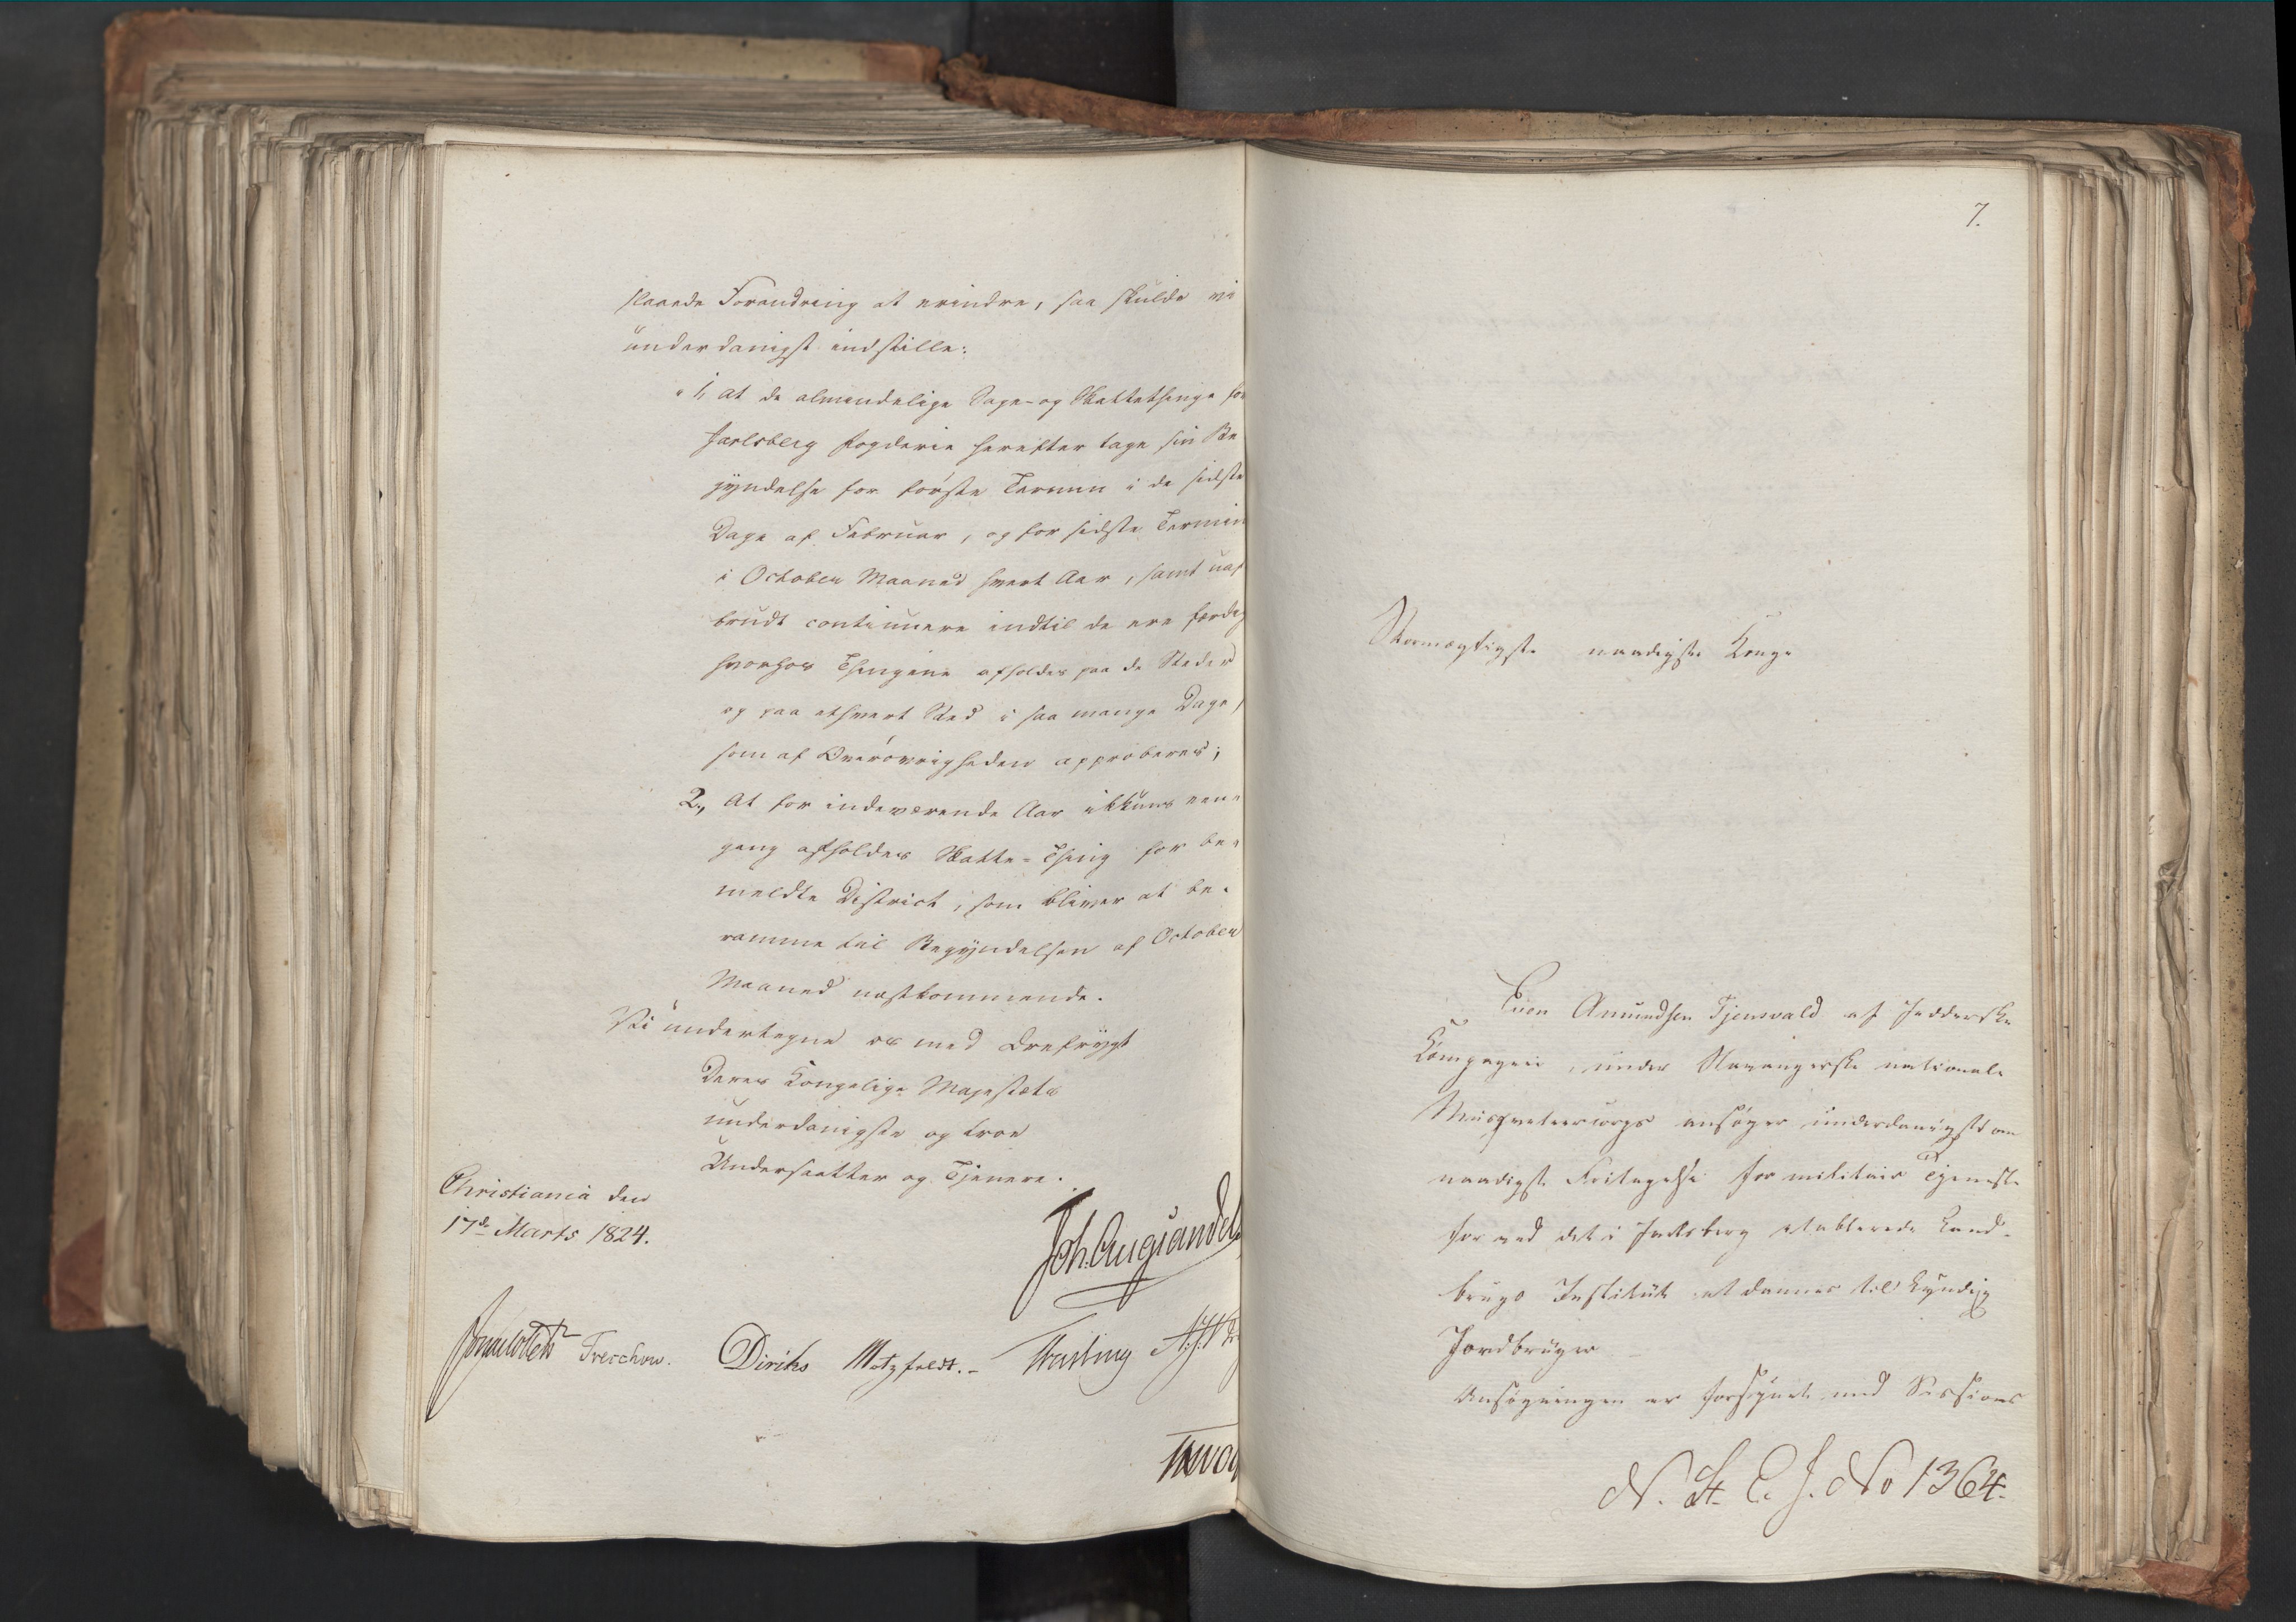 slaaede Forandring at erindre, saa skulde vi
underdanigst indstille:
"1, at de almindelige Sage- og Skattethinge for
Jarlsberg Fogderie herefter tage sin Be
gyndelse for første Termin i de sidste
Dage af Februar, og for sidste Termin
i October Maaned hvert Aar, samt uaf
brudt continuere indtil de ere færdig
hvorhos Thingene afholdes paa de Steder
og paa ethvert Sted i saa mange Dage,
som af Overøvrigheden approberes;
2., At for indeværende Aar ikkuns een
gang afholdes Skatte-Thing for be-
meldte District, som bliver at be-
ramme til Begyndelsen af October
Maaned næstkommende.
Vi undertegne os med Ærefrygt
Deres Kongelige Majestæts
underdanigste og troe
Undersaatter og Tjenere.
Christiania den
17de Marts 1824.
Joh. Aug Sandels
Jonas Collett Treschow. Diriks Motzfeldt.- Fasting
7.
Stormægtigste naadigste Konge
Even Amundsen Tjensvold af Jedderske
Kompagnie, under Stavangerske nationale
Musqueteercorps ansøger underdanigst om
naadigst Fritagelse for militair Tjeneste
for ved det i Jarlsberg etablerede Land-
brugs Institut at dannes til kyndig
Jordbruger
Ansøgningen er forsynet med Sessions
N. St. C. J. No 1364.